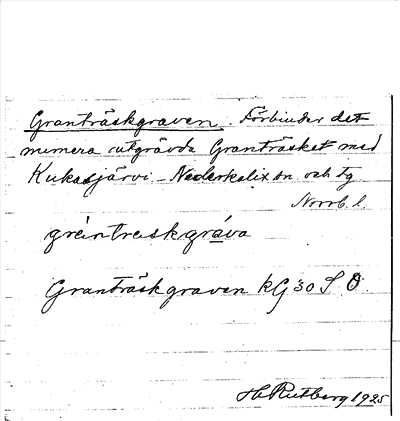 Granträskgraven. Förbinder det
numera utgrävda Granträsket med
Kukasjärvi - Nederkalix sn och tg
Norrb. l.
gräntreskgráva
Granträskgraven kG 30 S. O.
H. Rutberg 1925